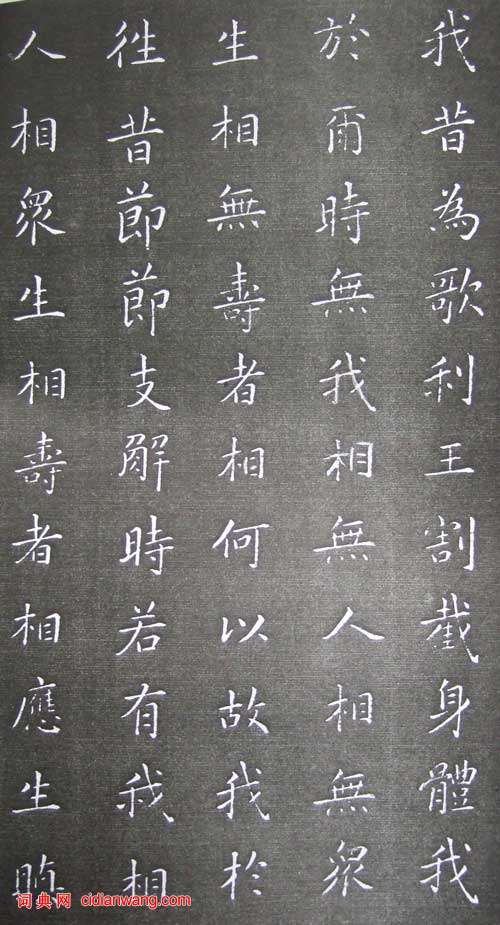 我昔為歌利王割截身體我
於爾時無我相無人相無眾
生相無壽者相何以故我於
徃昔節節支解時若有我相
人相眾生相壽者相應生瞋
词典网 cidianwang.com